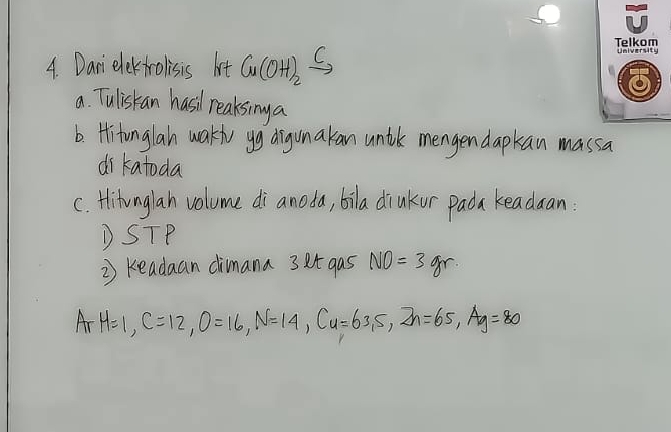 4. Dari elektrolisis lrt Cu(OH)₂ C→
a. Tuliskan hasil reaksinya
b. Hitunglah waktu yg digunakan untuk mengendapkan massa
di katoda
c. Hitunglah volume di anoda, bila diukur pada keadaan :
1) STP
2) Keadaan dimana 3 lt gas NO = 3 gr.
Ar H=1, C=12, O=16, N=14, Cu=63,5, Zn=65, Ag=80
Telkom
University